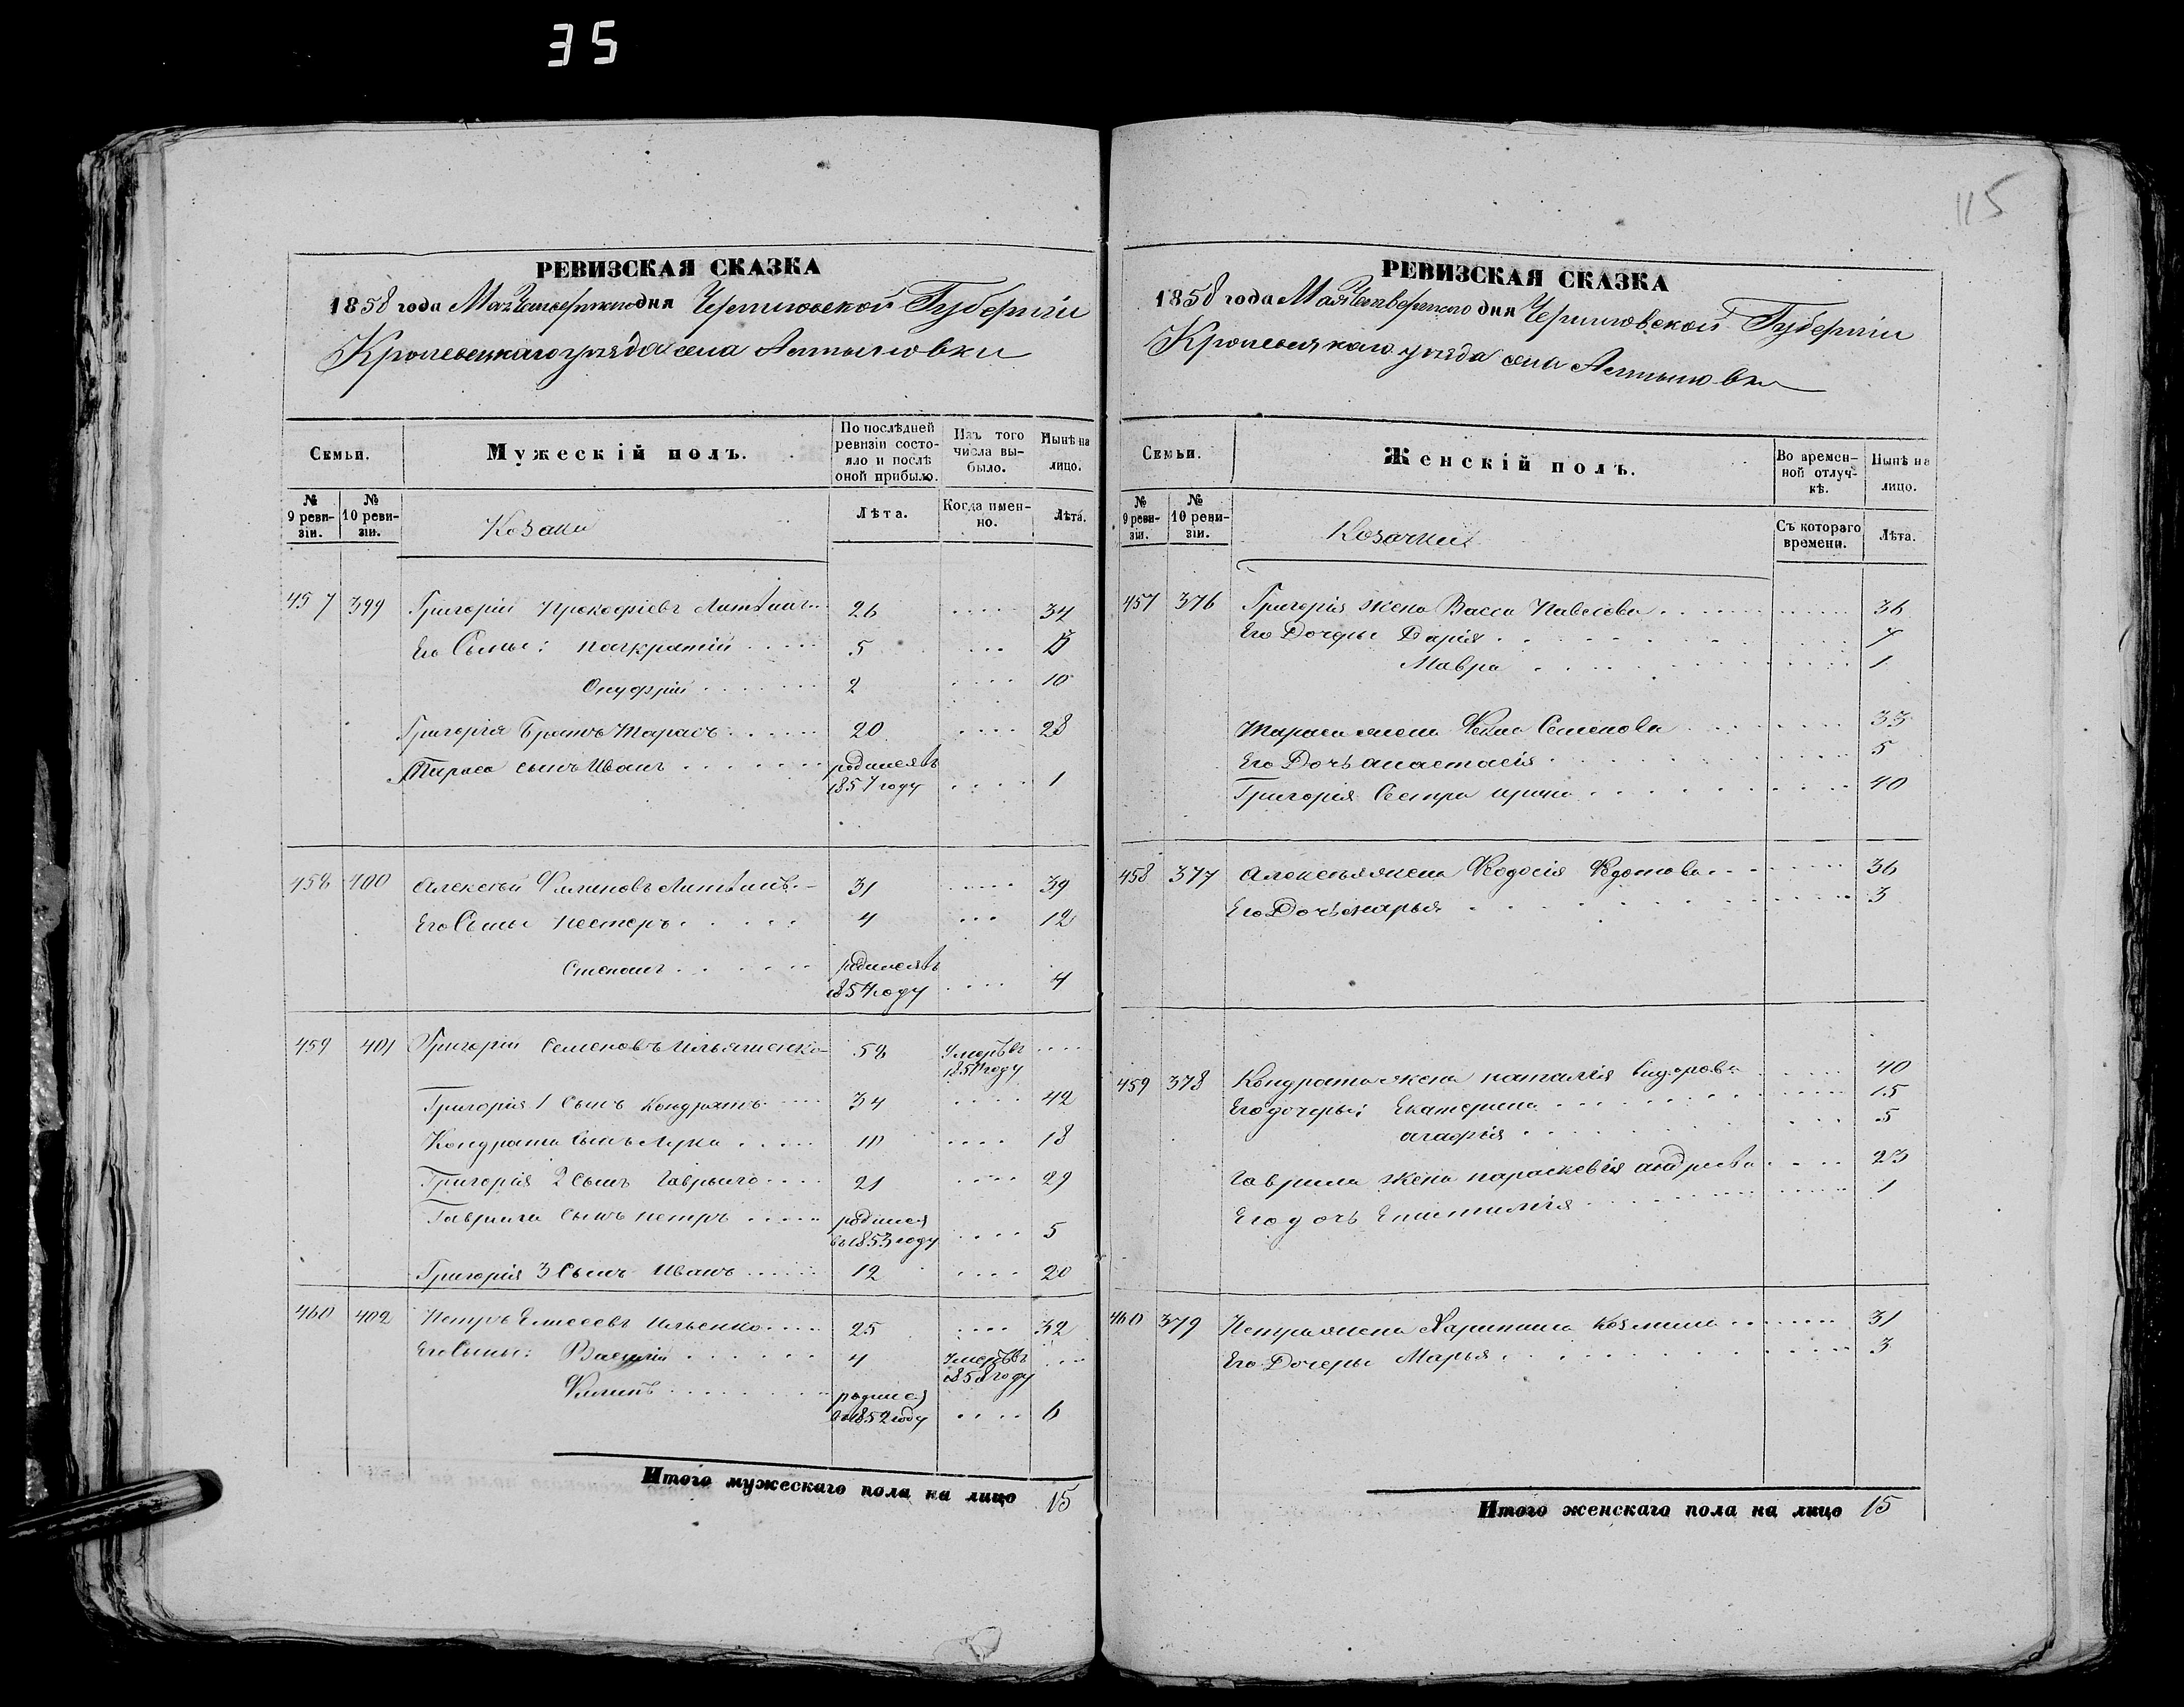 35
115
РЕВИЗСКАЯ СКАЗКА
1858 года Мая Четвертого дня Черниговской Губерніи
Кролевецкаго уезда села Алтыновки
Семьи.
Мужескій полъ.
По послѣдней ревизіи состояло и послѣ оной прибыло.
Изъ того числа выбыло.
Нынѣ на лицо.
№ 9 ревизіи.
№ 10 ревизіи.
Козаки
Лѣта.
Когда именно.
Лѣта.
457 399 Григорій Прокофіевъ 26 34
Его Сыны: Панкратій 5 13
Онуфрій 2 10
Григорія Братъ Тарасъ 20 28
Тараса сынъ Иванъ родился въ
1857 году 1
458 400 Алексѣй Филиповъ 31 39
Его Сыны Нестеръ 4 12
Степанъ родился въ
1854 году 4
459 401 Григорій Семеновъ Ильяшенко 58 Умеръ въ
1854 году
Григорія 1 Сынъ Кондратъ 34 42
Кондрата Сынъ Лука 10 18
Григорія 2 Сынъ Гаврыло 21 29
Гаврила Сынъ Петръ родился
въ 1853 году 5
Григорія 3 Сынъ Иванъ 12 20
460 402 Петръ Елисеевъ Ильенко 25 32
Его Сыны: Василій 4 Умеръ въ
1858 году
Филипъ родился
въ 1852 году 6
Итого мужескаго пола на лицо 15
РЕВИЗСКАЯ СКАЗКА
1858 года Мая Четвертого дня Черниговской Губерніи
Кролевецкаго уезда села Алтыновки
Семьи.
Женскій полъ.
Во временной отлучкѣ.
Нынѣ на лицо.
№ 9 ревизіи.
№ 10 ревизіи.
Козачки
Съ котораго времени.
Лѣта.
457 376 Григорія жена Васса Павлова 36
Его Дочеры Дарія 7
Мавра 1
Тараса жена Семенова 33
Его Дочь анастасія 5
Григорія Сестра ирина 40
458 377 Алексѣя жена Ѳедосія Ѳедотова 36
Его Дочь марья 3
459 378 Кондрата жена наталія Сидорова 40
Его дочеры: Екатерина 15
агафія 5
Гаврила жена параскевія андреева 23
Его дочь Епистимія 1
460 379 Петра жена Харитина Козмина 31
Его Дочеры Марья 3
Итого женскаго пола на лицо 15